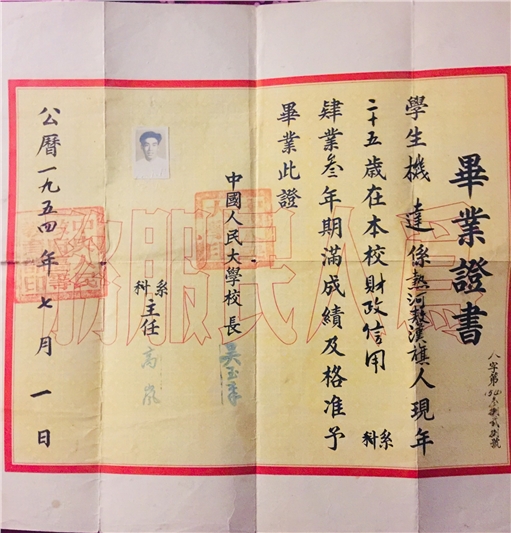 畢業證書
學生機達係熱河敖漢旗人現年
二十五歲在本校財政信用系科
肄業叁年期滿成績及格准予
畢業此證
中國人民大學校長 吳玉章
系科主任
公曆一九五四年七月一日
為人民服務